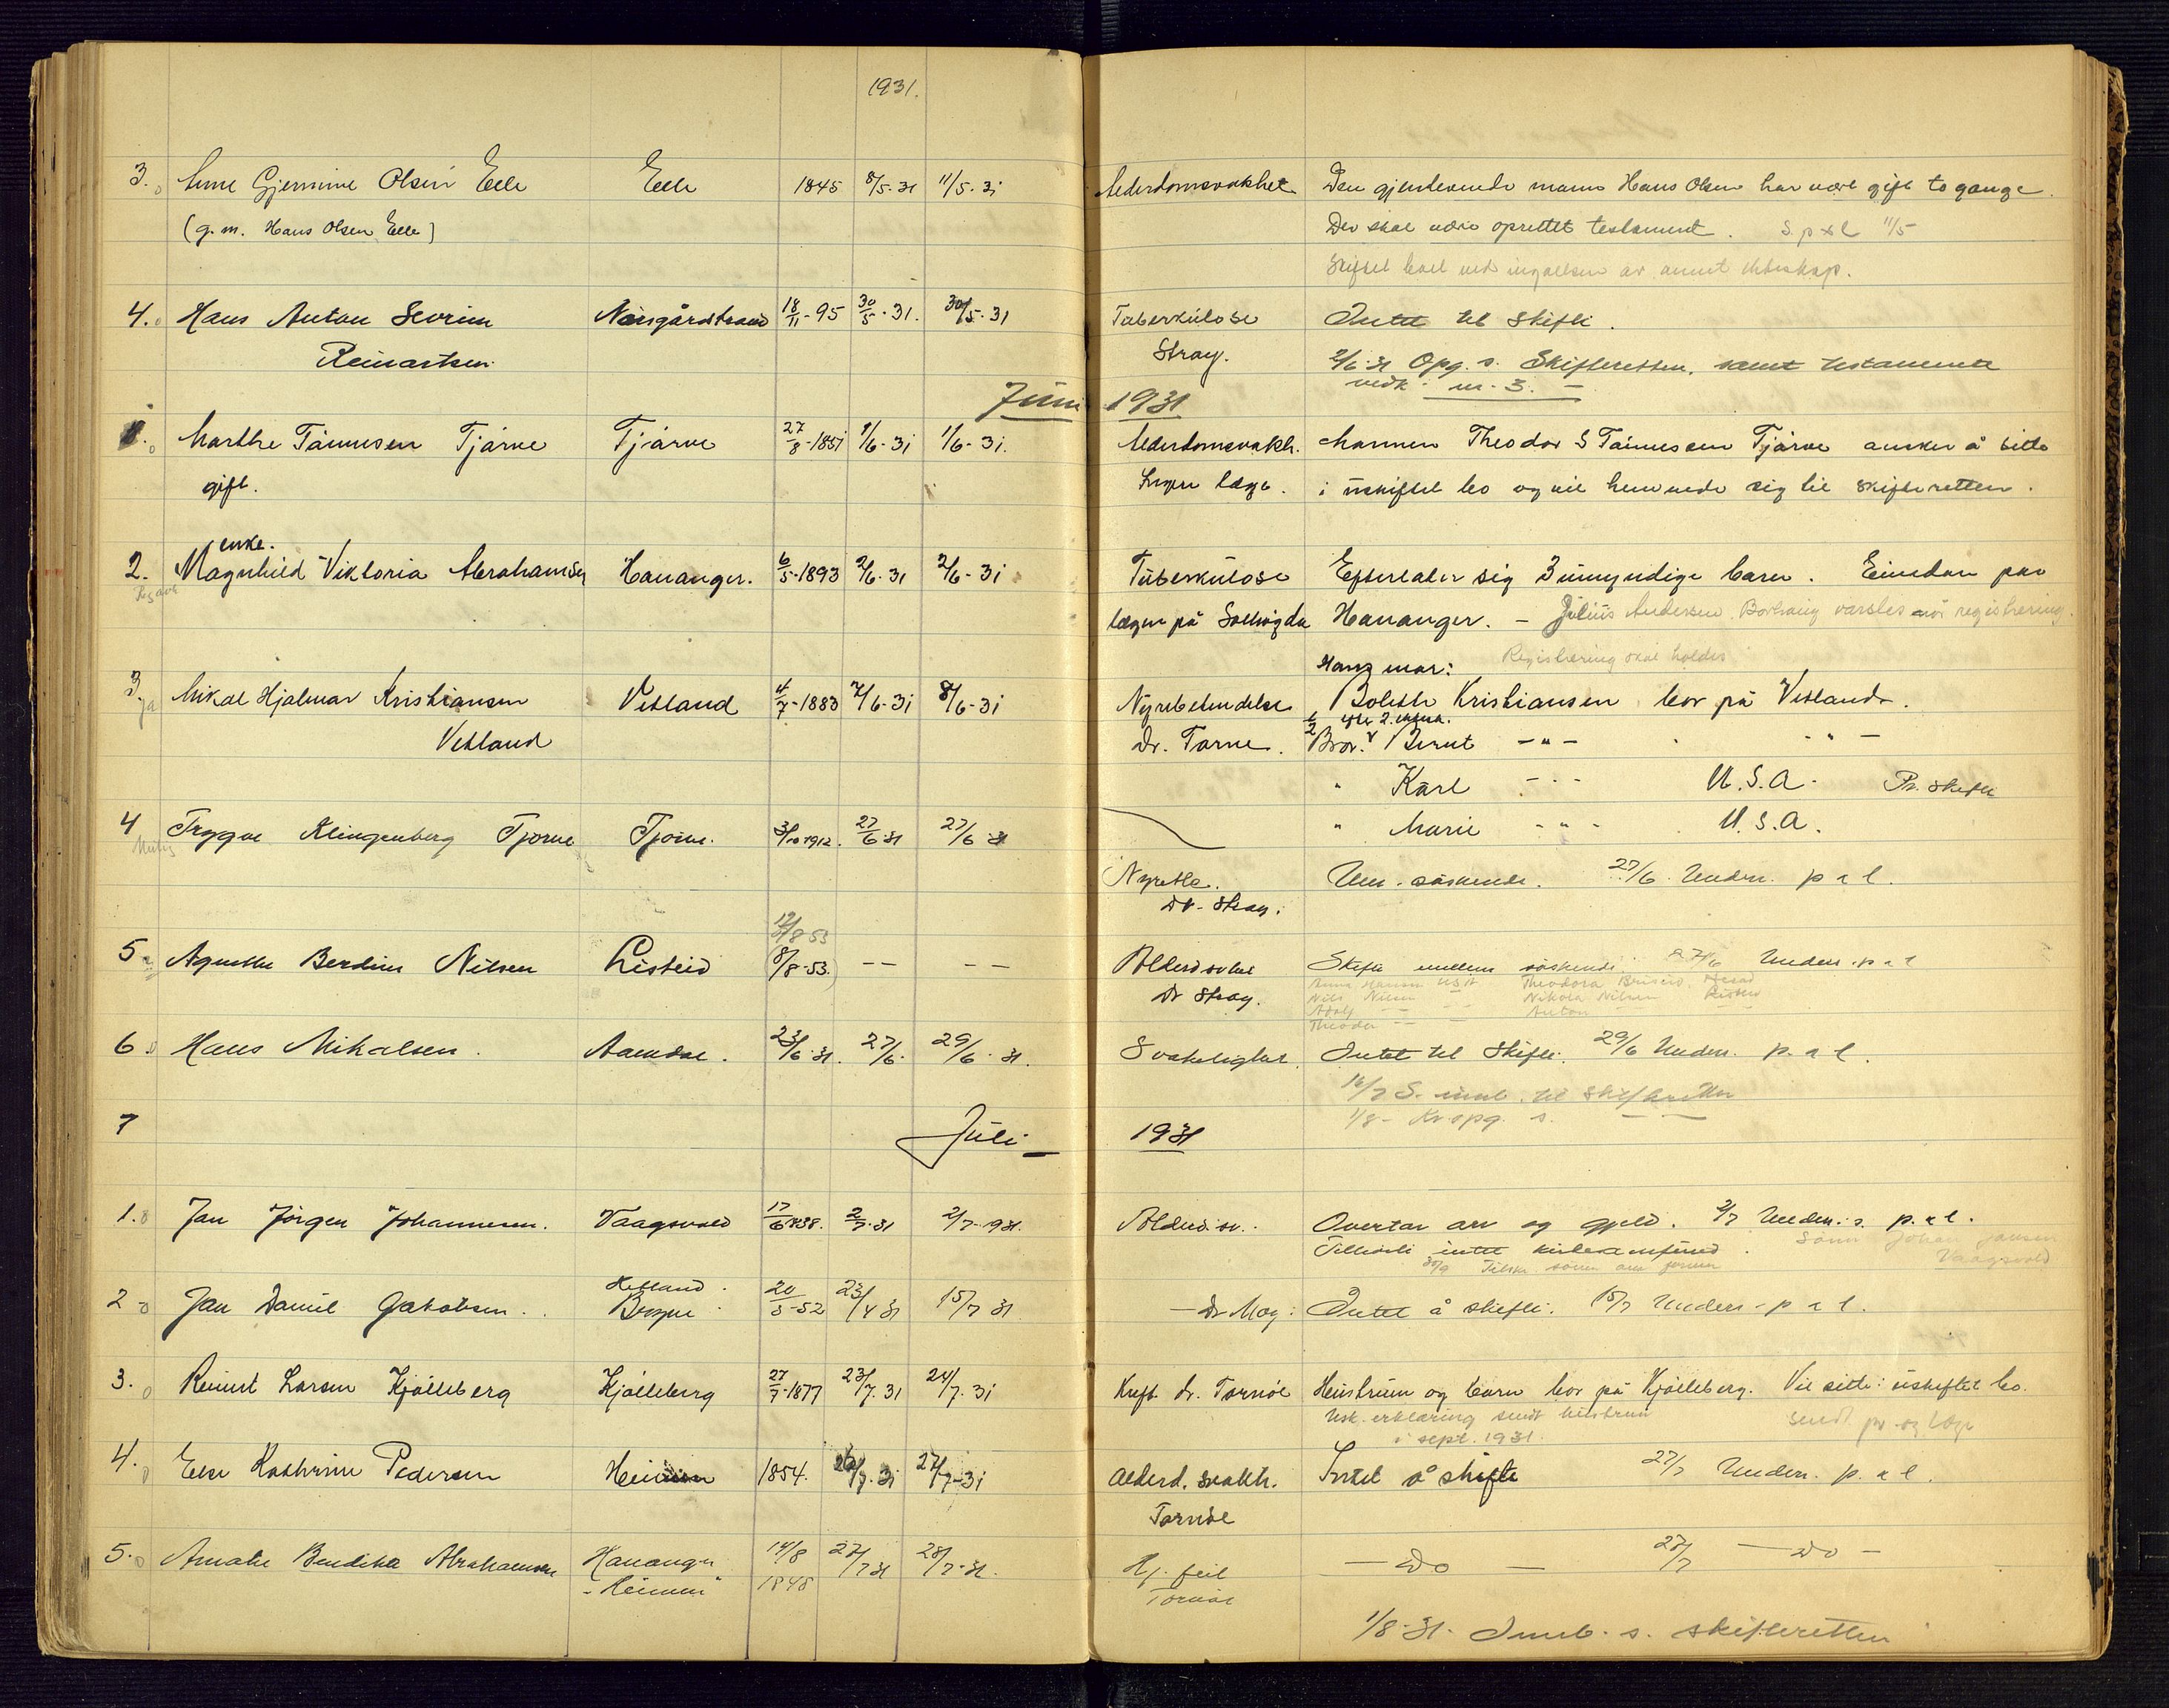 1931.
3. Anne Gjermine Olsen Eele Eele 1845 8/5.31 11/5.31 Alderdomsvakhet. Den gjenlevende mann Hans Olsen har vært gift to gange.
(g.m. Hans Olsen Eele) Der skal være oprettet testament. S. p & l 11/5
Skiftet ved av annet ekteskap.
4. Hans Anton Severin 18/11-95 30/5.31. 30/5.31 Tuberkulose Intet til Skifte.
Reinartsen Stray. 2/6.31 Opg. s. Skifteretten, samt testamente
vedk. nr. 3. —
Juni 1931
1. Marthe Tønnesen Tjørve Tjørve 27/8-1851 1/6-31 1/6-31. Alderdomsvakh. Mannen Theodor S Tønnesen Tjørve ønsker å sitte
gift. Ingen læge. i uskiftet bo og vil henvende sig til skifteretten.
enke.
2. Magnhild Viktoria Abrahamsen Hananger. 6/5-1893 2/6.31 2/6-31 Tuberkulose Efterlater sig 3 umyndige barn. Eiendom på
lægen på Solhøgda Hananger. – Julius Andersen Borhaug varsles når registrering.
Registrering skal holdes
Hans mor:
3. Mikal Hjalmar Kristiansen Vetland 4/7-1883 7/6-31 8/6-31 Nyrebetendelse Bolette Kristiansen bor på Vetland.
Vetland dr. Tornøe. Bror. Bernt –"– –"–
" Karl –"– U.S.A. Pr. Skifte
" Marie –"– U.S.A.
4 Trygve Klingenberg Tjørve Tjørve. 3/10 1912. 27/6.31 27/6 31
Nyrebl. Um. søskende. 27/6. Underr. p & l.
Dr. Stray.
12/8 53
5. Agnethe Berdine Nilsen Listeid 8/8-53. — — Skifte mellem søskende 27/6 Underr. p & l
Dr Stray.
Anna Hansen USA Theodora Briseid,
Nils Nilsen — Nikola Nilsen Listeid
Adolf — — Anton —
Theodor — —
6 Hans Mikalsen. Aamdal. 23/6.31. 27/6. 29/6.31. Svakelighet. Intet til Skifte. 29/6 Underr. p. & l.
16/7 S. innb. til skifteretten
1/8 – Kv.opg. s. — —
7 Juli 1931
1. Jan Jörgen Johannesen. Vaagsvold 17/6 1838. 2/7.31 2/7-931. Alderd.sv. Overtar arv og gjeld. 2/7 Underr. s. p. & l.
Sønn Johan Jansen
Vaagsvold
2 Jan Daniel Jakobsen. Hetland. 20/3-52 23/4 31 15/7 31 — Dr Mag: Intet å skifte. 15/7 Underr. p & l.
3. Reinert Larsen Kjølleberg Kjølleberg 27/7-1877 23/7.31 24/7.31 Kreft dr. Tornøe Heustruen og barn bor på Kjølleberg. Vil sitte i uskiftet bo.
Usk. erklæring sendt hustruen
i sept. 1931.
4. Else Kathrine Pedersen Heimen 1854. 26/7.31 27/7-31 Alderd. svakh. Intet å skifte 27/7 Underr. p. & l.
Tornøe
5. Amalie Bendikte Abrahamsen Hananger 14/8 27/7 31 28/7.31. Hj. feil — Do — 28/7 — Do —
"Heimen" 1848 Tornøe
1/8-31. Innb. s. skifteretten